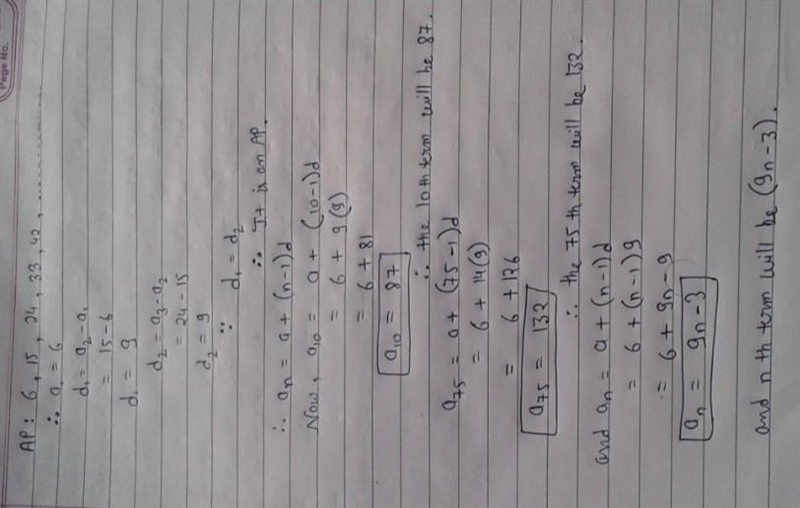 Page No.
AP : 6 , 15 , 24 , 33 , 42 , ....................
∴ a₁ = 6
d₁ = a₂ - a₁
= 15 - 6
d₁ = 9
d₂ = a₃ - a₂
= 24 - 15
d₂ = 9
∵ d₁ = d₂
∴ It is an AP.
∴ aₙ = a + (n-1)d
Now, a₁₀ = a + (10-1)d
= 6 + 9(9)
= 6 + 81
a₁₀ = 87
∴ the 10th term will be 87.
a₇₅ = a + (75-1)d
= 6 + 14(9)
= 6 + 126
a₇₅ = 132
∴ the 75th term will be 132.
and aₙ = a + (n-1)d
= 6 + (n-1)9
= 6 + 9n - 9
aₙ = 9n - 3
and nth term will be (9n-3).